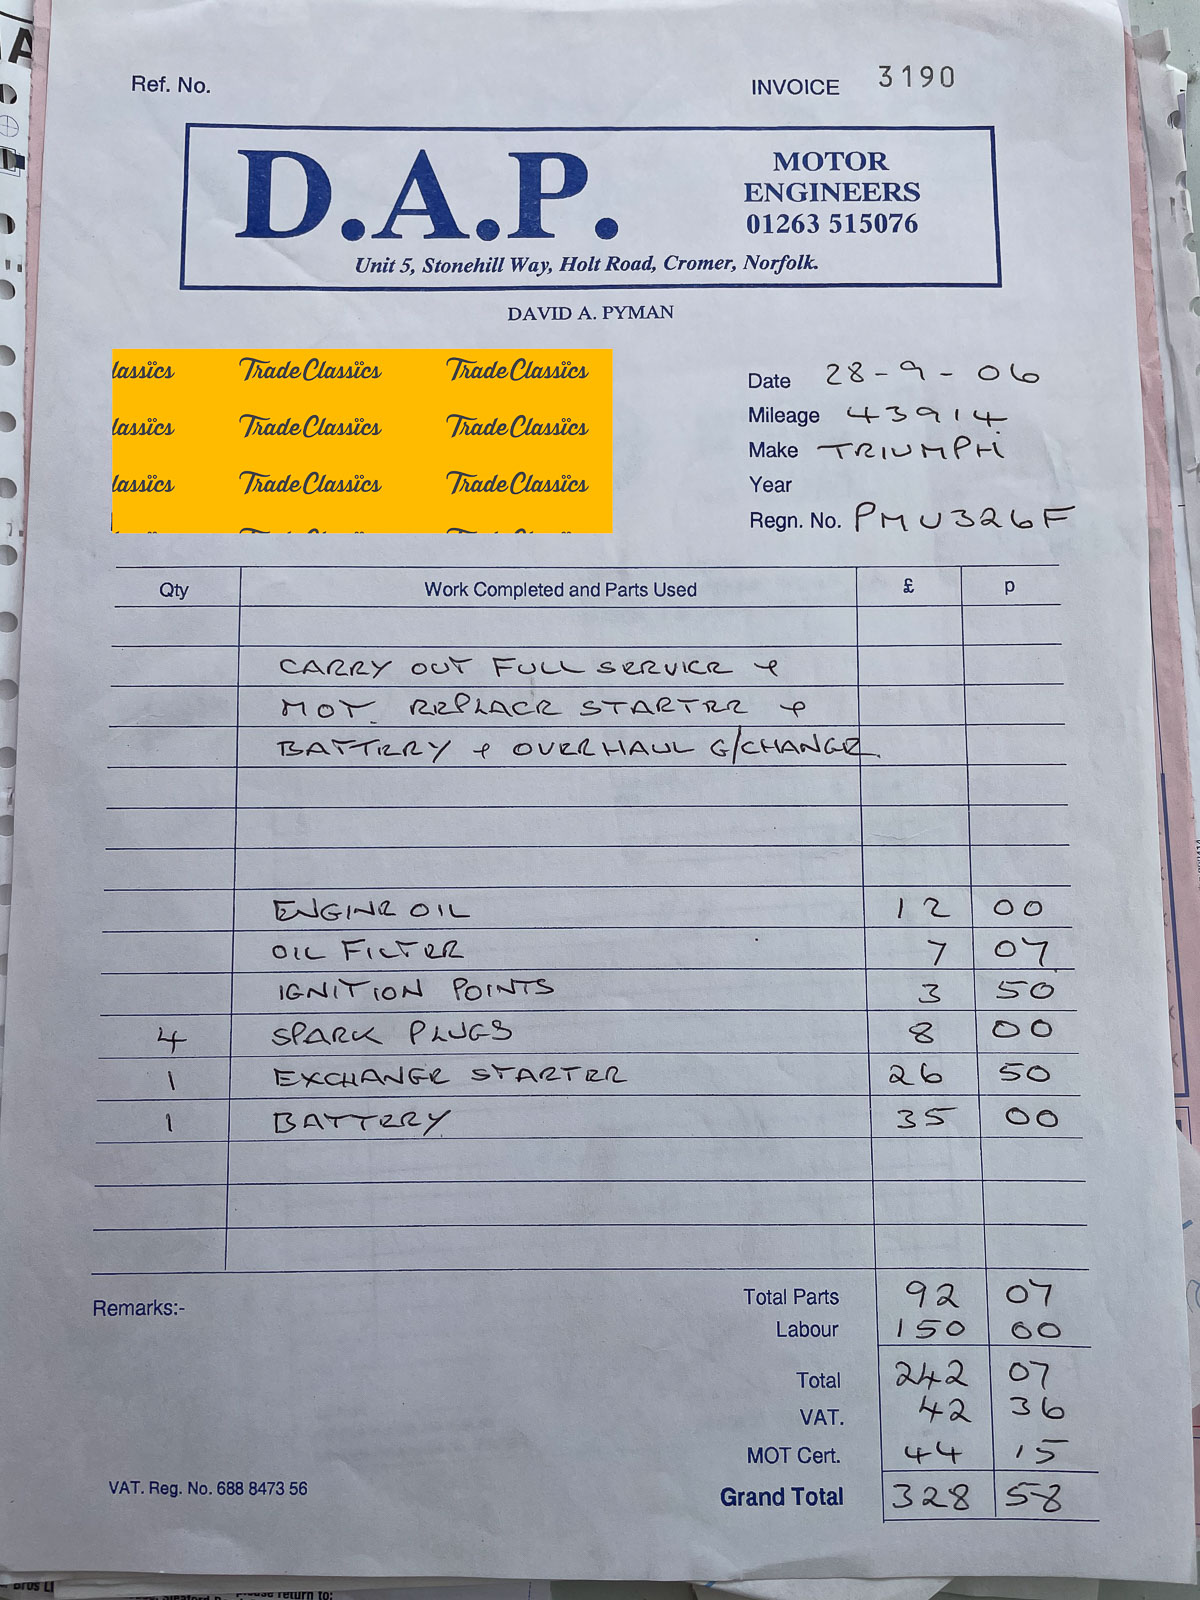 Ref. No.
INVOICE 3190
D.A.P.
MOTOR
ENGINEERS
01263 515076
Unit 5, Stonehill Way, Holt Road, Cromer, Norfolk.
DAVID A. PYMAN
lassics Trade Classics Trade Classics
lassics Trade Classics Trade Classics
lassics Trade Classics Trade Classics
Date 28-9-06
Mileage 43914
Make TRIUMPH
Year
Regn. No. PMU326F
Qty Work Completed and Parts Used £ p
CARRY OUT FULL SERVICE &
MOT. REPLACE STARTER &
BATTERY & OVERHAUL G/CHANGE.
ENGINE OIL 12 00
OIL FILTER 7 07
IGNITION POINTS 3 50
4 SPARK PLUGS 8 00
1 EXCHANGE STARTER 26 50
1 BATTERY 35 00
Remarks:-
Total Parts 92 07
Labour 150 00
Total 242 07
VAT. 42 36
MOT Cert. 44 15
Grand Total 328 58
VAT. Reg. No. 688 8473 56